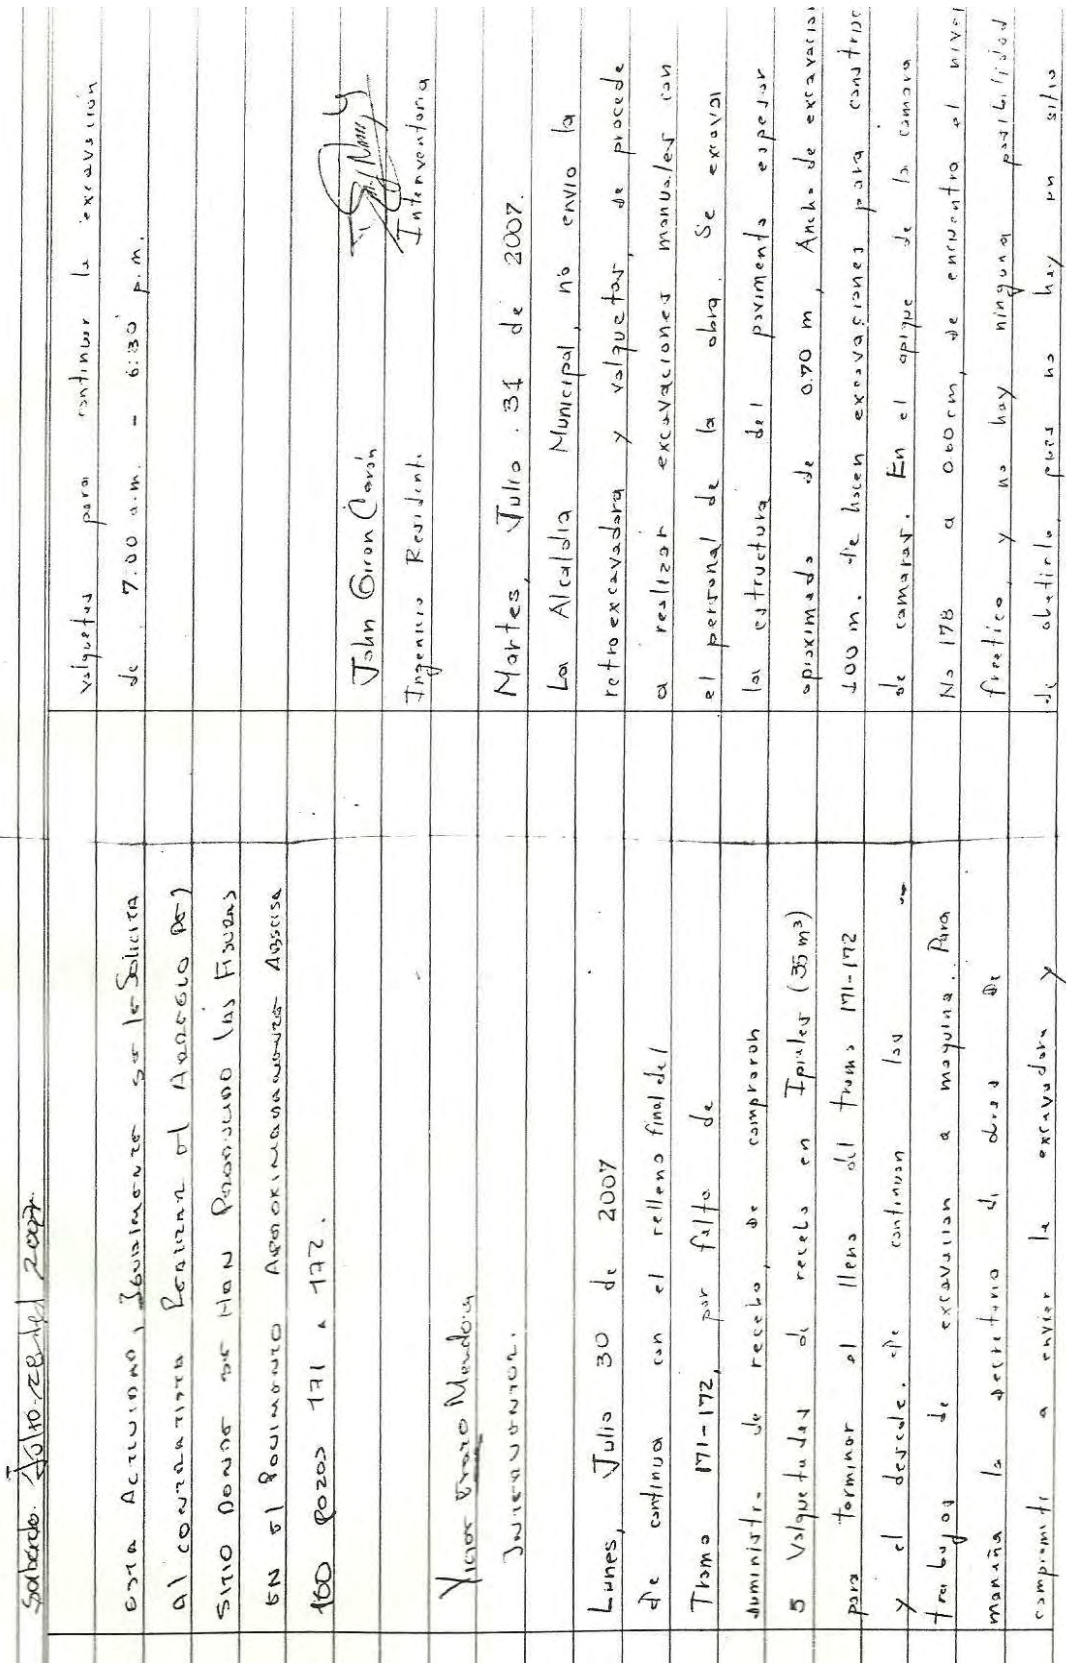 Sabado. Julio. 28 del 2007.
esta Actividad, Igualmente se le Solicita
al contratista Realizar el Arreglo del
sitio Donde se Han Producido las Fisuras
en el Pavimento Aproximadamente Abscisa
160 Pozos 171 a 172.
Victor Erazo Mendoza
Interventor.
Lunes, Julio 30 de 2007
Se continua con el relleno final del
Tramo 171-172, por falta de
suministro de recebo, se compraron
5 Valquetadas de recebo en Ipiales (35 m³)
para terminar el lleno del tramo 171-172
y el descole. Se continuan los
trabajos de excavacion a maquina. Para
mañana la secretaria de obras se
compromete a enviar la excavadora y
valquetas para continuar la excavación
de 7.00 a.m. - 6:30 p.m.
John Giron Cerón
Ingeniero Residente Interventoria
Martes, Julio. 31 de 2007.
La Alcaldia Municipal, no envio la
retroexcavadora y valquetas, se procede
a realizar excavaciones manuales con
el personal de la obra. Se excavan
la estructura del pavimento espesor
aproximado de 0.70 m, Ancho de excavacion
1.00 m. Se hacen excavaciones para construc
de camaras. En el apique de la camara
No 178 a 0.60 cm, se encuentra el nivel
freatico, y no hay ninguna posibilidad
de abatirlo, pues no hay un sitio